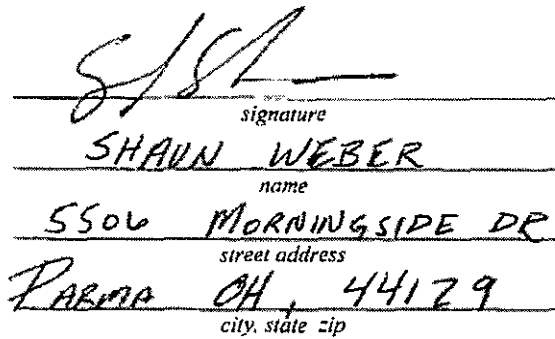 signature
SHAUN WEBER
name
5506 MORNINGSIDE DR
street address
PARMA OH, 44129
city, state zip